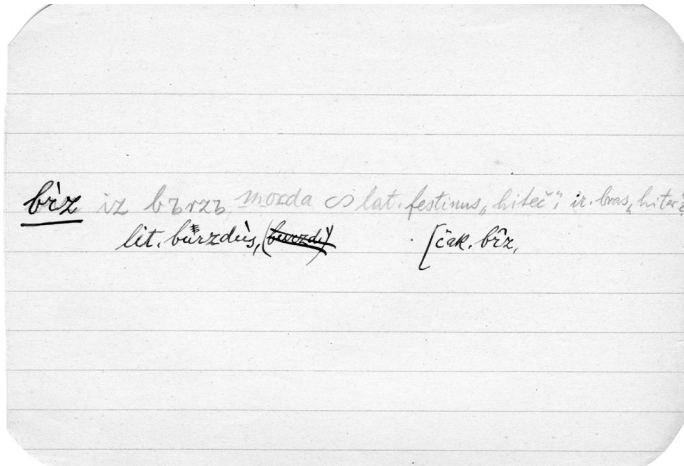 bȉz iz bъrzъ, morda ∾ lat. festinus „hiteč“; ir. bras „hiteč“
lit. burzdùs, (burzdi) [čak. bȓz,